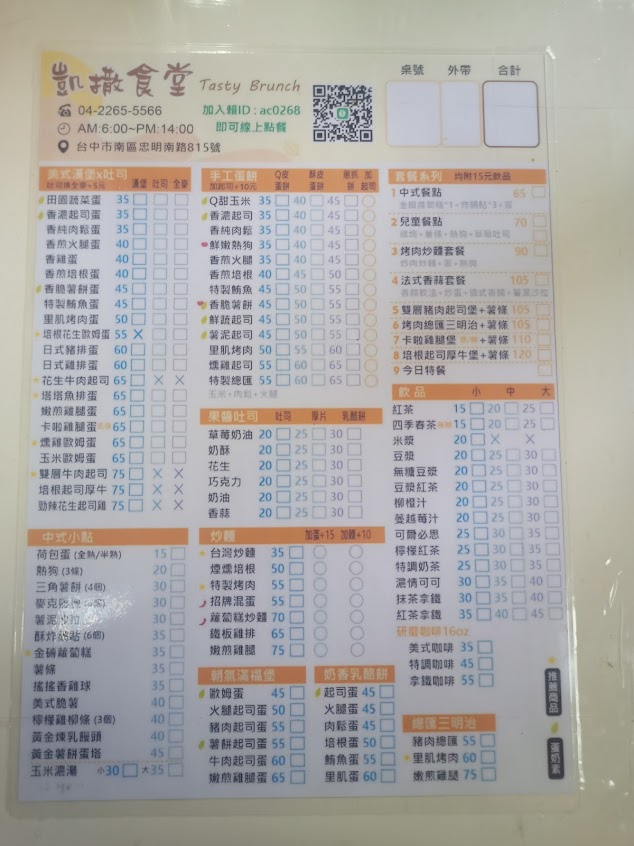 凱撒食堂 Tasty Brunch
04-2265-5566
AM:6:00~PM:14:00
台中市南區忠明南路815號
加入賴ID:ac0268
即可線上點餐
桌號 外帶 合計
美式漢堡x吐司 漢堡 吐司 全麥
吐司換全麥+5元
田園蔬菜蛋 35
香濃起司蛋 35
香純肉鬆蛋 35
香煎火腿蛋 40
香雞蛋 40
香煎培根蛋 40
香脆薯餅蛋 45
特製鮪魚蛋 45
里肌烤肉蛋 50
培根花生歐姆蛋 55 X
日式豬排蛋 60
日式雞排蛋 60
花生牛肉起司 65 X X
塔塔魚排蛋 65
嫩煎雞腿蛋 65
卡啦雞腿蛋 65
燻雞歐姆蛋 65
玉米歐姆蛋 65
雙層牛肉起司 75 X X
培根起司厚牛 75 X X
勁辣花生起司雞 75 X X
中式小點
荷包蛋 (全熟/半熟) 15
熱狗 (3條) 20
三角薯餅 (4個) 30
麥克雞塊
薯泥沙拉
酥炸 (6個) 35
金磚蘿蔔糕 35
薯條 35
搖搖香雞球 35
美式脆薯 40
檸檬雞柳條 (3個) 40
黃金煉乳饅頭 40
黃金薯餅蛋塔 45
玉米濃湯 小30 大35
手工蛋餅 Q皮蛋餅 酥皮蛋餅 蔥抓餅 加起司
加起司+10元
Q甜玉米 35 40 45
香濃起司 35 40 45
香純肉鬆 35 40 45
鮮嫩熱狗 35 40 45
香煎火腿 35 40 45
香煎培根 40 45 50
特製鮪魚 45 50 55
香脆薯餅 45 50 55
鮮蔬起司 45 50 55
薯泥起司 45 50 55
里肌烤肉 50 55 60
燻雞起司 55 60 65
特製總匯 55 60 65
玉米+肉鬆+火腿
果醬吐司 吐司 厚片 乳酪餅
草莓奶油 20 25 30
奶酥 20 25 30
花生 20 25 30
巧克力 20 25 30
奶油 20 25 30
香蒜 20 25 30
炒麵 加蛋+15 加麵+10
台灣炒麵 35
煙燻培根 50
特製烤肉 55
招牌混蛋 55
蘿蔔糕炒麵 70
鐵板雞排 65
嫩煎雞腿 75
朝氣滿福堡
歐姆蛋 45
火腿起司蛋 50
豬肉起司蛋 55
薯餅起司蛋 55
牛肉起司蛋 60
嫩煎雞腿蛋 65
奶香乳酪餅
起司蛋 45
火腿蛋 45
肉鬆蛋 45
培根蛋 50
鮪魚蛋 55
里肌蛋 60
套餐系列 均附15元飲品
1 中式餐點 65
2 兒童餐點 70
3 烤肉炒麵套餐 90
炒肉炒麵+蛋+熱狗
4 法式香蒜套餐 105
5 雙層豬肉起司堡+薯條 105
6 烤肉總匯三明治+薯條 105
7 卡啦雞腿堡 +薯條 110
8 培根起司厚牛堡+薯條 120
9 今日特餐
飲品 小 中 大
紅茶 15 20 25
四季春茶 15 20 25
米漿 20 X X
豆漿 20 25 30
無糖豆漿 20 25 30
豆漿紅茶 20 25 30
柳橙汁 20 25 30
蔓越莓汁 20 25 30
可爾必思 25 30 35
檸檬紅茶 25 30 35
特調奶茶 25 30 35
濃情可可 30 35 40
抹茶拿鐵 30 35 40
紅茶拿鐵 35 40 45
研磨咖啡16oz
美式咖啡 35
特調咖啡 45
拿鐵咖啡 55
推薦商品
蛋奶素
總匯三明治
豬肉總匯 55
里肌烤肉 60
嫩煎雞腿 75